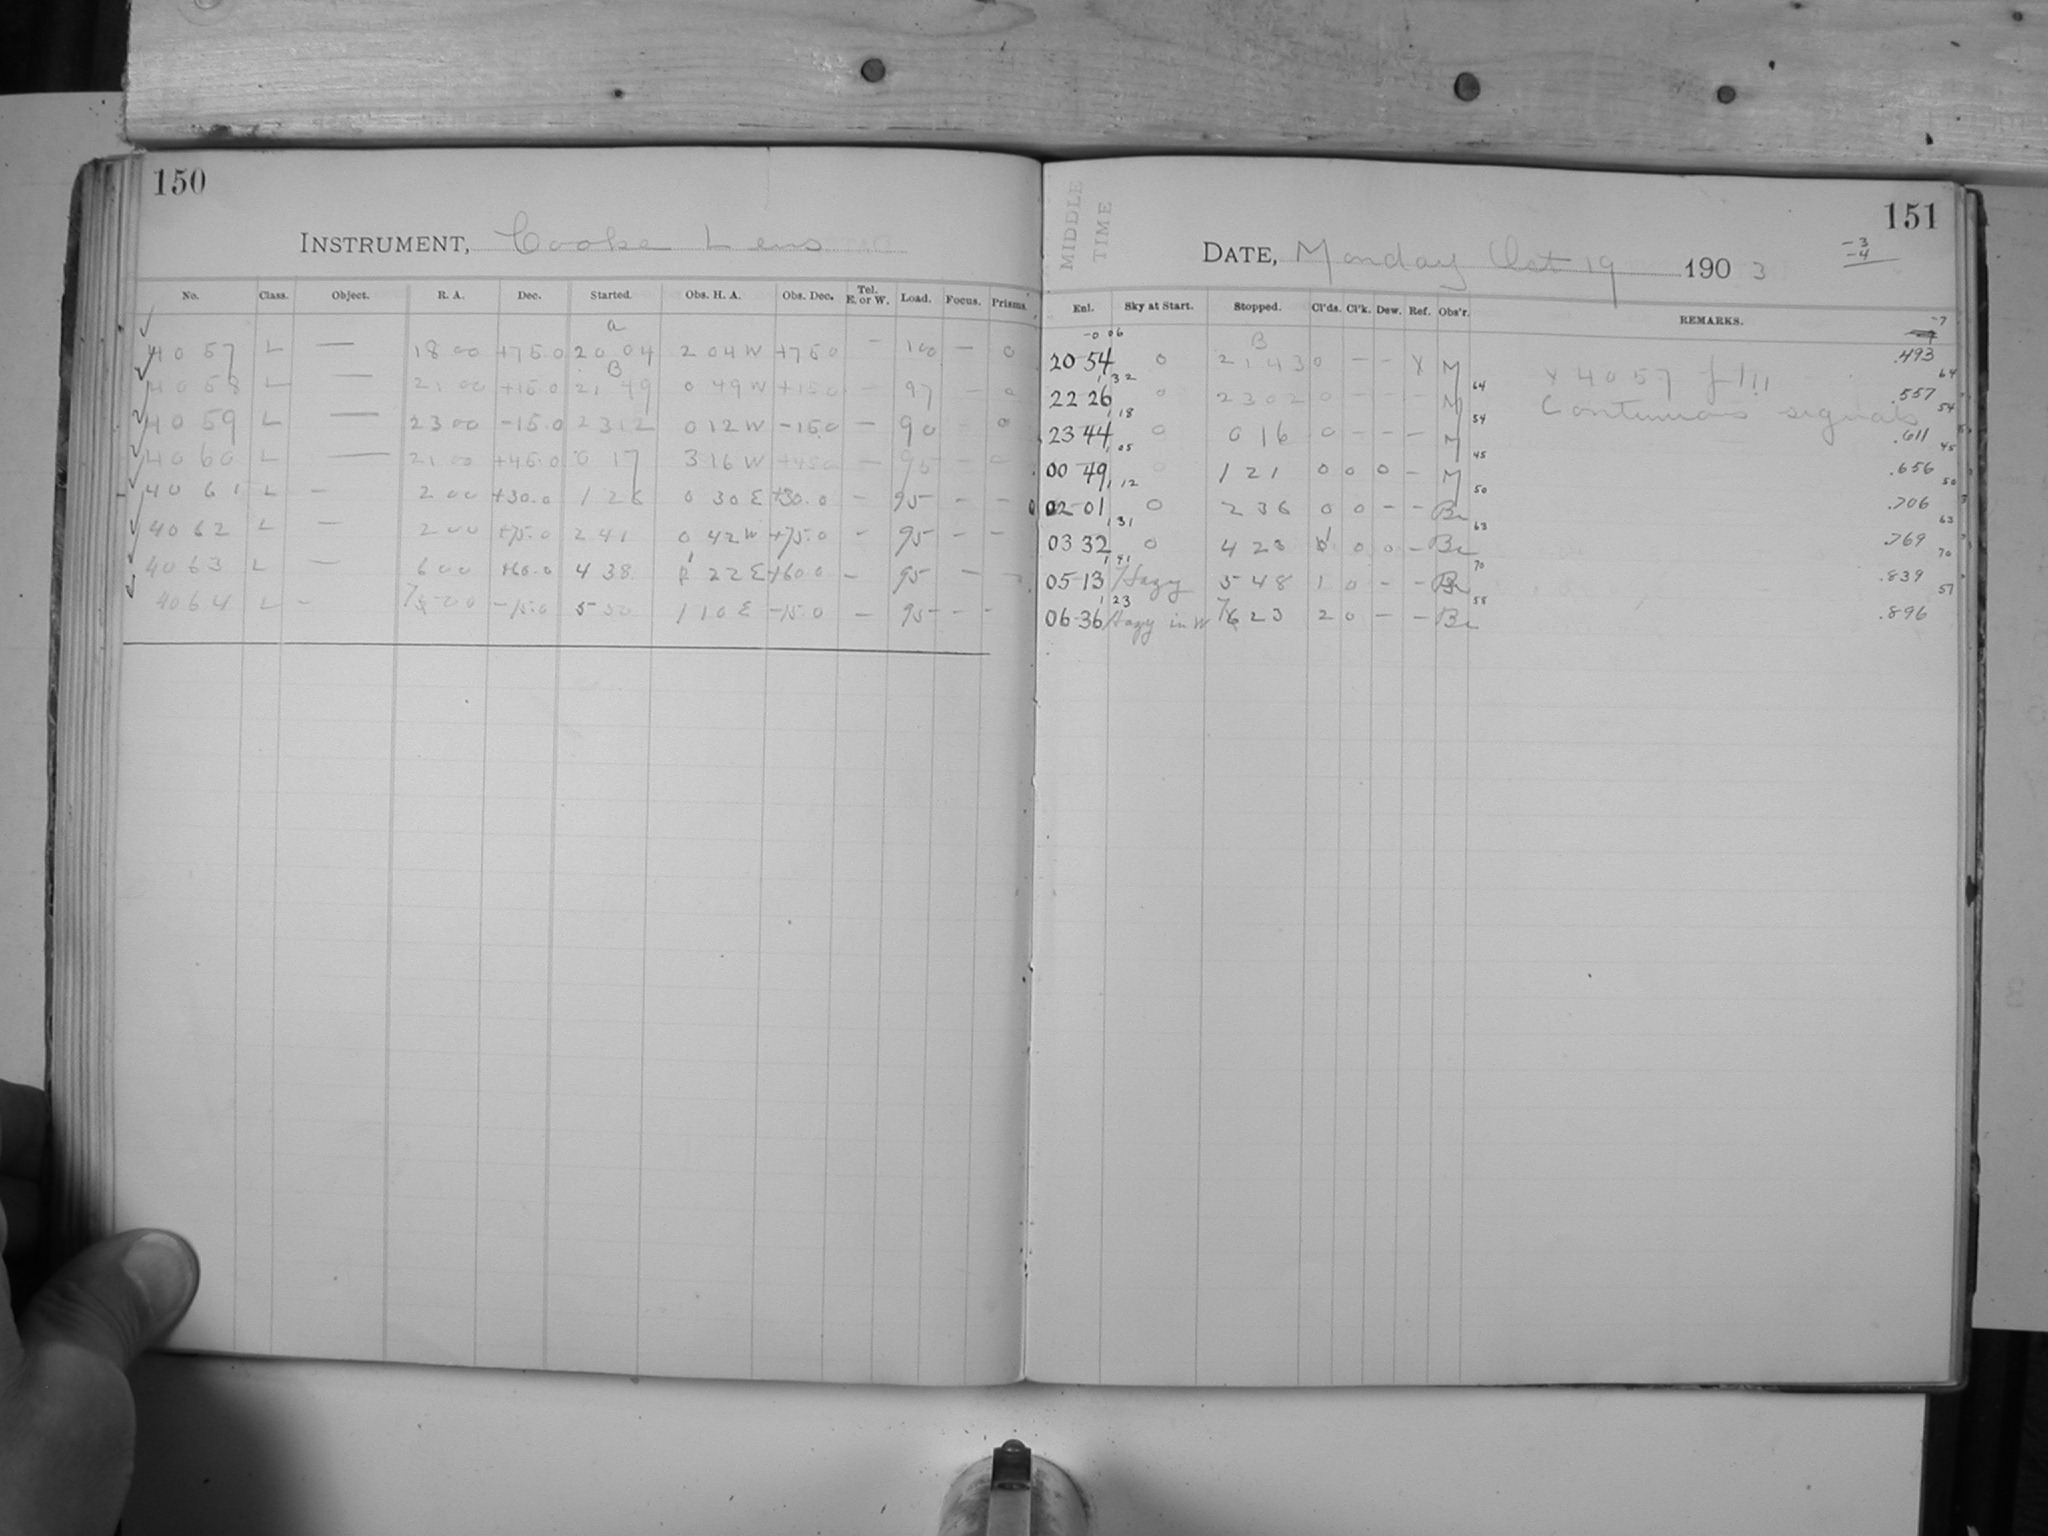 150
INSTRUMENT, Cooke Lens
No. Class. Object. R. A. Dec. Started. Obs. H. A. Obs. Dec. Tel. E. or W. Load. Focus. Prisms.
a
4057 L — 18 00 +75.0 20 04 2 04 W +75 0 — 100 — 0
B
4058 L — 21 00 +15.0 21 49 0 49 W +15 0 — 97 — 0
4059 L — 23 00 -15.0 23 12 0 12 W -15.0 — 90 0
4060 L — 21 00 +45.0 0 17 3 16 W +45 0 — 95 — 0
4061 L — 2 00 +30.0 1 26 0 30 E +30.0 — 95 — —
4062 L — 2 00 +75.0 2 41 0 42 W +75.0 — 95 — —
4063 L — 6 00 +60.0 4 38 1 22 E +60 0 — 95 —
4064 L — 7 00 -15.0 5 50 1 10 E -15.0 — 95 — —
151
MIDDLE TIME
DATE, Monday Oct 19 1903
-3
-4
Enl. Sky at Start. Stopped. Cl'ds. Cl'k. Dew. Ref. Obs'r. REMARKS.
-7
-0 06
B
20 54 0 21 43 0 — — X M .493
1 32 64
X 4057 f !!!
22 26 0 23 02 0 — — — M .557
1 18 64 54
Continuous signals
23 44 0 0 16 0 — — — M .611
1 05 54 45
00 49 0 1 21 0 0 0 — M .656
1 12 45 50
02 01 0 2 36 0 0 — — Br .706
1 31 50 63
03 32 0 4 23 0 0 — Br .769
1 41 63 70
05 13 Hazy 5 48 1 0 — — Br .839
1 23 70 57
06 36 Hazy in W 7 23 2 0 — — Br .896
58